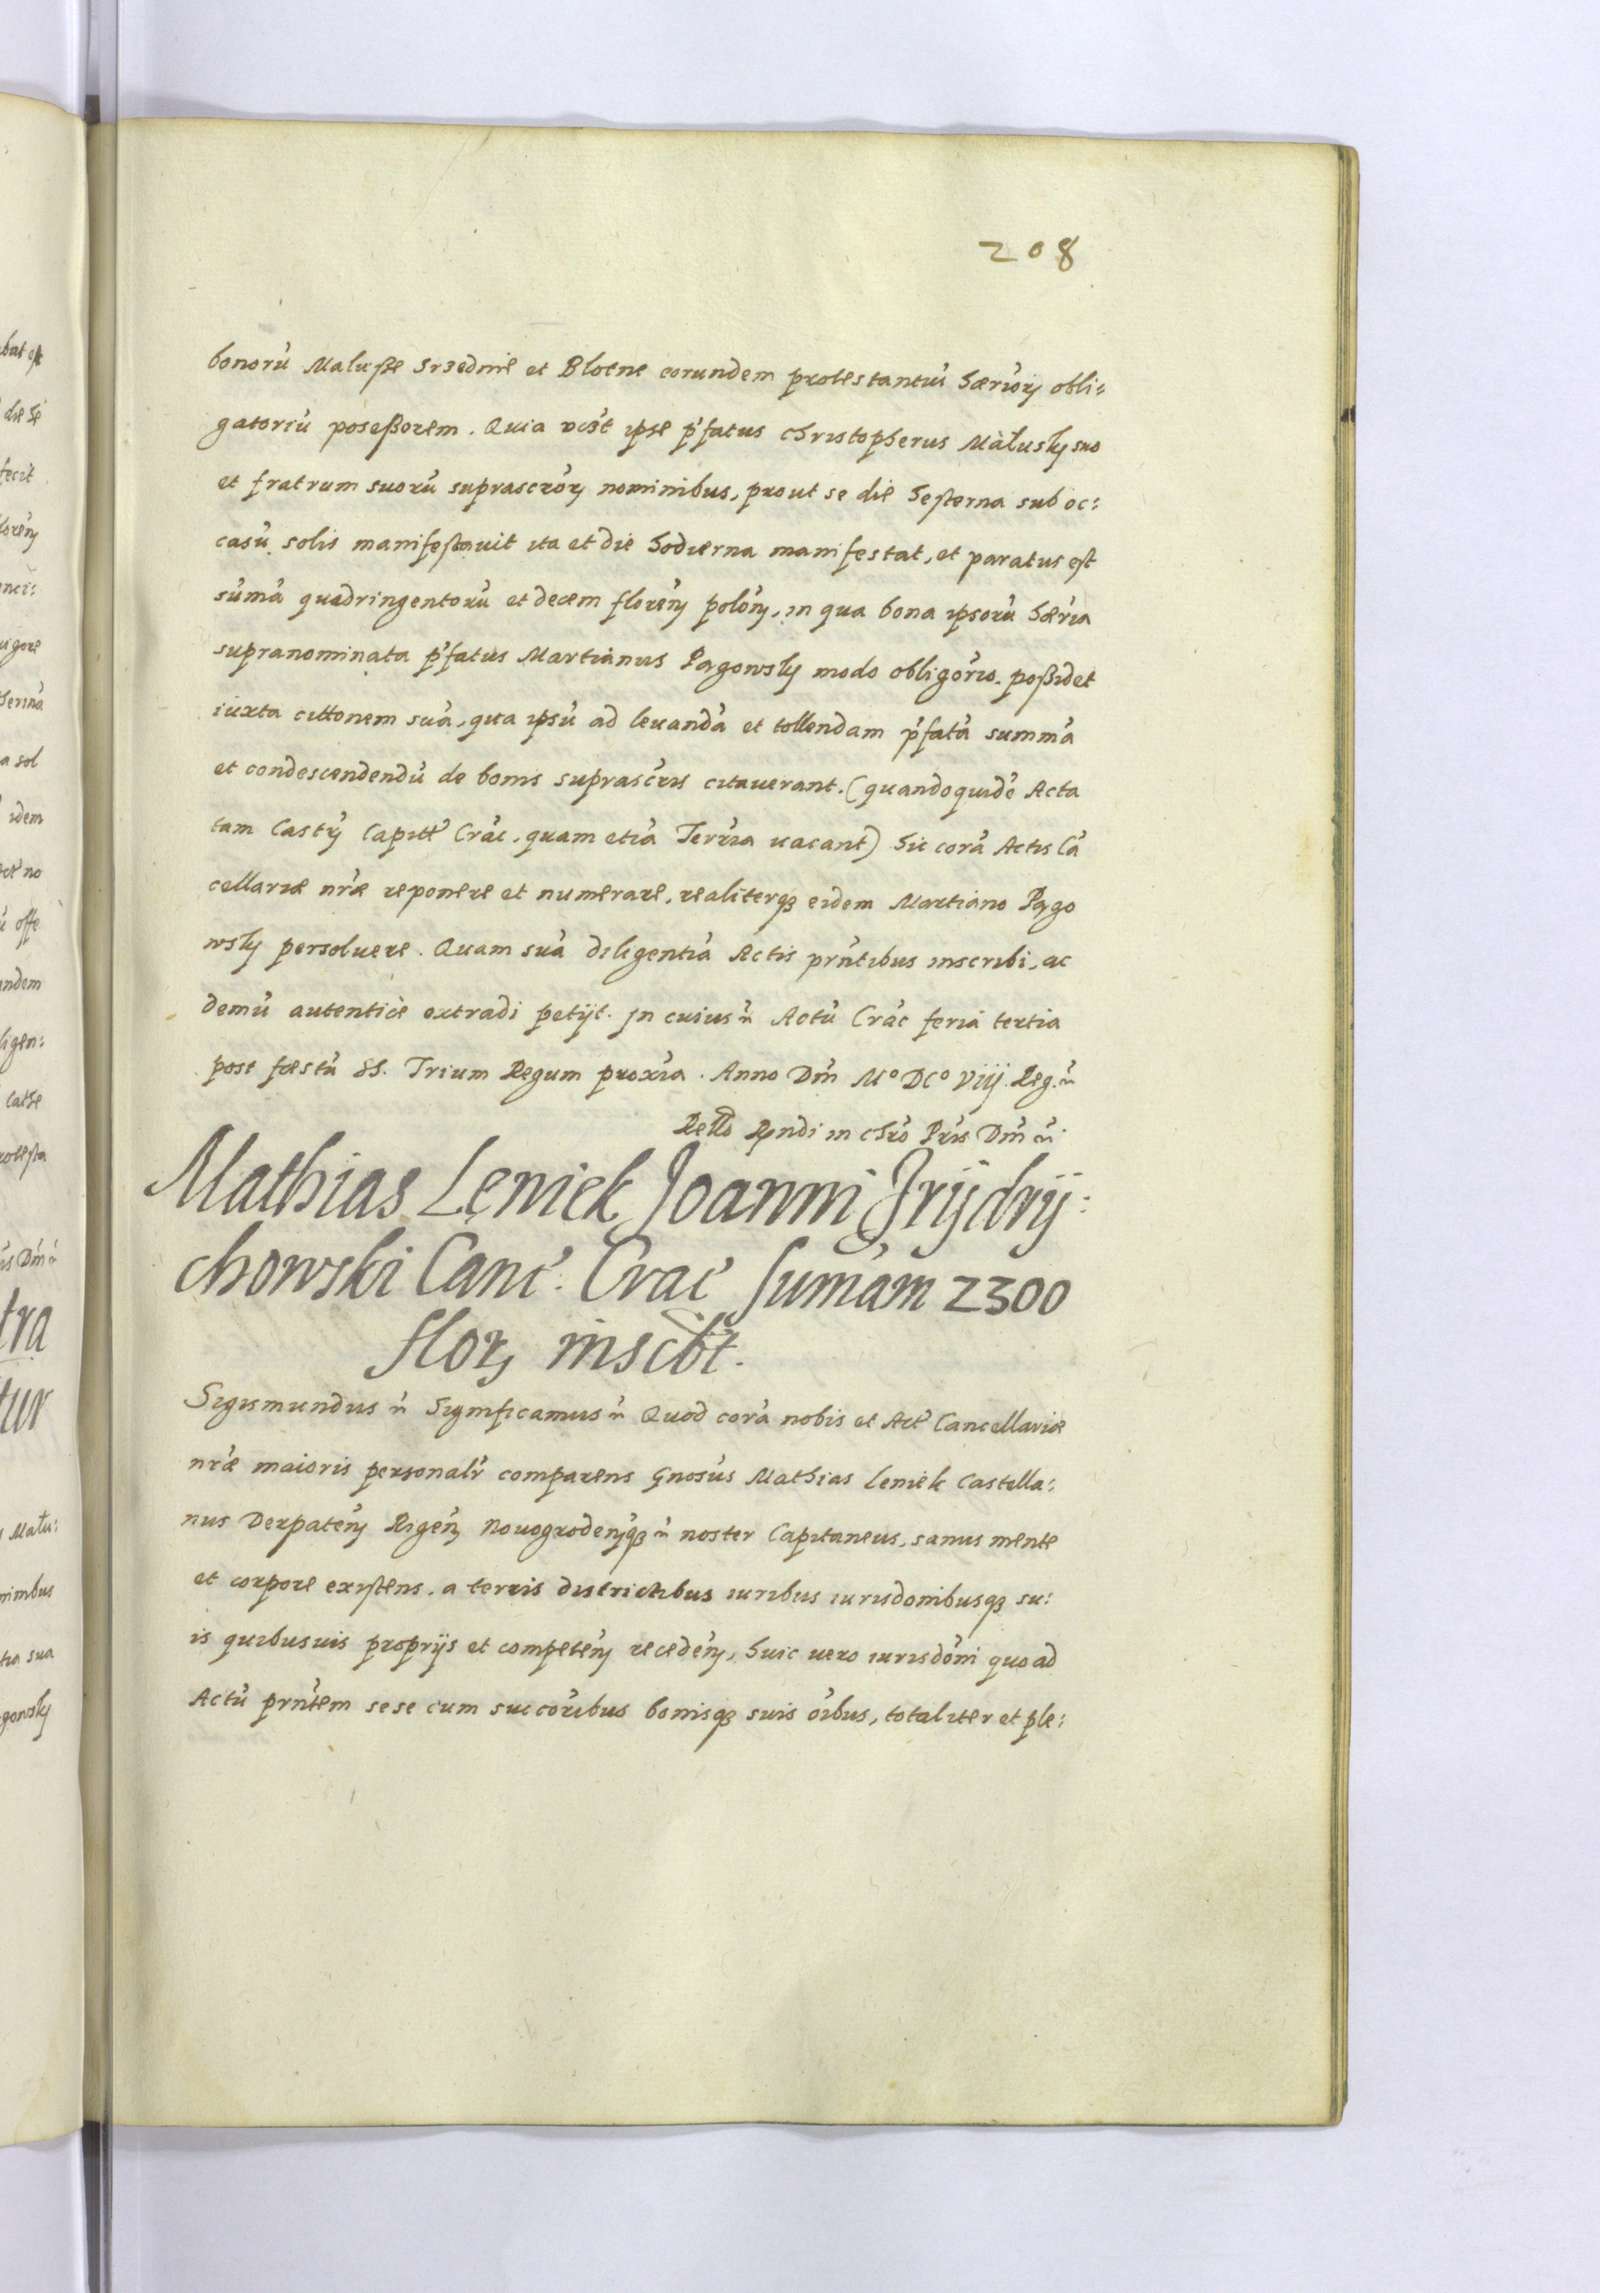 208
bonorú Małusze Srzednie et Błotne eorundem protestantiú hærúorz obli=
gatoriú posessorem. Quia ipse p'fatus Christophorus Małusky suo
et fratrum suorú suprascrórz nominibus, prout se die hesterna sub oc:
casú solis manifestauit ita et die hodierna manifestat, et paratus est
súmá quadringentorú et decem florén polón, in qua bona ipsorú hæría
supranominata p'fatus Martianus Pągowsky modo obligório possidet
iuxta cittonem suá, qua ipsú ad leuandá et tollendam p'fatá summá
et condescendendú de bonis suprascris citauerant. (quandoquidé Acta
tam Castr Capitt Crác, quam etiá Terría uacant) hic corá Actis Cá
cellariæ nræ reponere et numerare, realiterq3 eidem Martiano Pągo
wsky persoluere. Quam suá diligentiá Actis prńtibus inscribi, ac
demú autenticè extradi petijt. In cuius ń Actú Crác feria tertia
post festú SS. Trium Regum proxía. Anno Dńi Mº DCº VIIJ. Reg. ń
Rello Rndi in Chró Prís Dńi ń
Mathias Lęniek Joanni Frÿdrÿ:
chowski Canc. Crac Sumám 2300
flor inscbt.
Sigismundus ń Significamus ń Quod corá nobis et Act Cancellariæ
nræ maioris personalr comparens Gnosus Mathias Leniek Castella:
nus Derpatén Rigén Nouogrodenq3 ń noster Capitaneus, sanus mente
et corpore existens, a terris districtibus iuribus iurisdonibusq3 su:
is quibusuis proprijs et competén recedén, huic uero iurisdóni quo ad
Actú prńtem sese cum succóribus bonisq3 suis óibus, totaliter et ple: